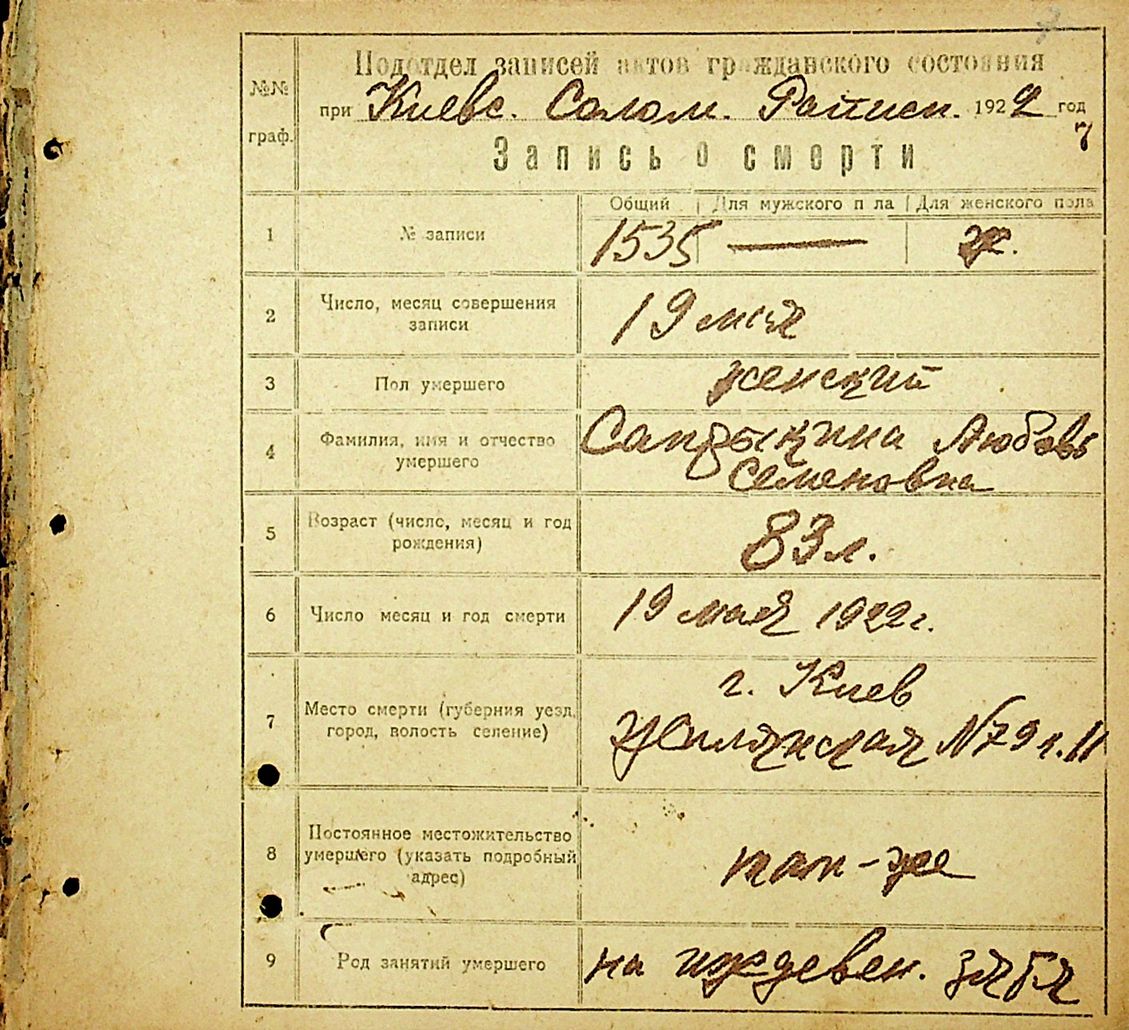 №№ граф.
Подотдел записей актов гражданского состояния
при Киевс. Солом. Райиси. 1922 год
Запись о смерти
Общий Для мужского п ла Для женского пола
1 № записи 1535 — ж.
2 Число, месяц совершения записи 19 мая
3 Пол умершего женский
4 Фамилия, имя и отчество умершего Сапрыкина Любовь
Семеновна
5 Возраст (число, месяц и год рождения) 83 л.
6 Число месяц и год смерти 19 мая 1922 г.
7 Место смерти (губерния уезд, город, волость селение) г. Киев
Жилянская №79 к. 11
8 Постоянное местожительство умершего (указать подробный адрес) там-же
9 Род занятий умершего на иждевен. зятя